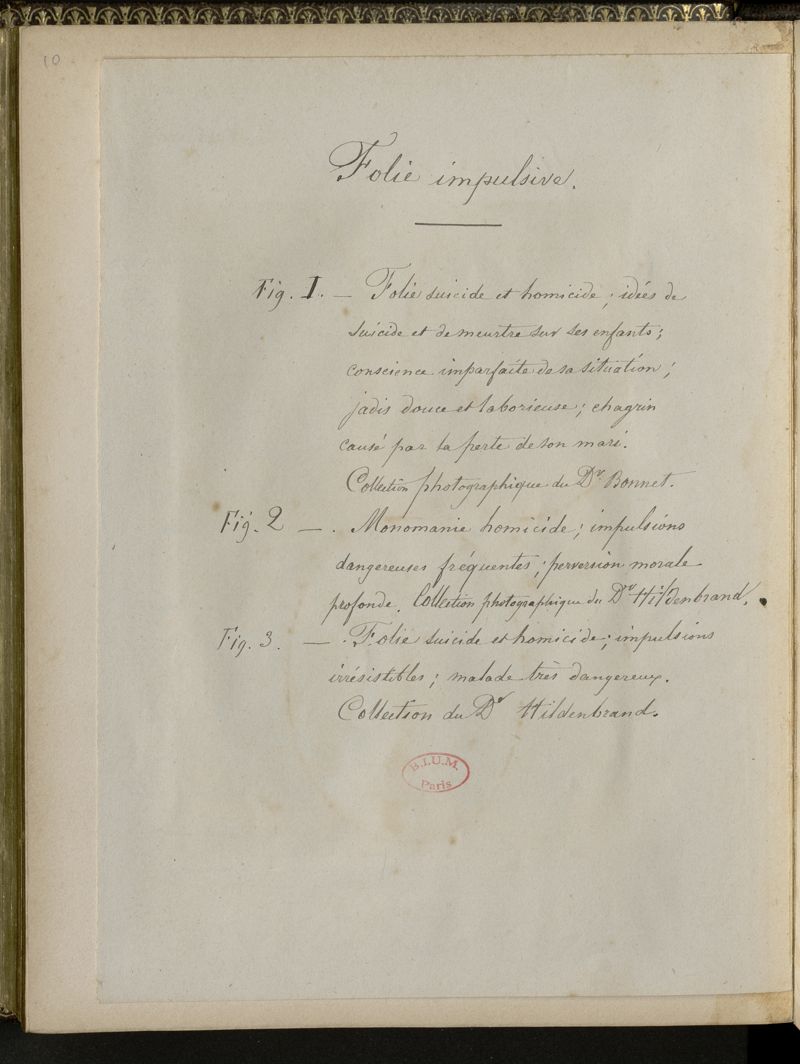 10
Folie impulsive.
Fig. I. — Folie suicide et homicide; idées de
suicide et de meurtre sur ses enfants;
conscience imparfaite de sa situation;
jadis douce et laborieuse; chagrin
causé par la perte de son mari.
Collection photographique du Dr Bonnet.
Fig. 2 — . Monomanie homicide; impulsions
dangereuses fréquentes; perversion morale
profonde. Collection photographique du Dr Hildenbrand.
Fig. 3. — . Folie suicide et homicide; impulsions
irrésistibles; malade très dangereux.
Collection du Dr Hildenbrand.
B.I.U.M.
Paris